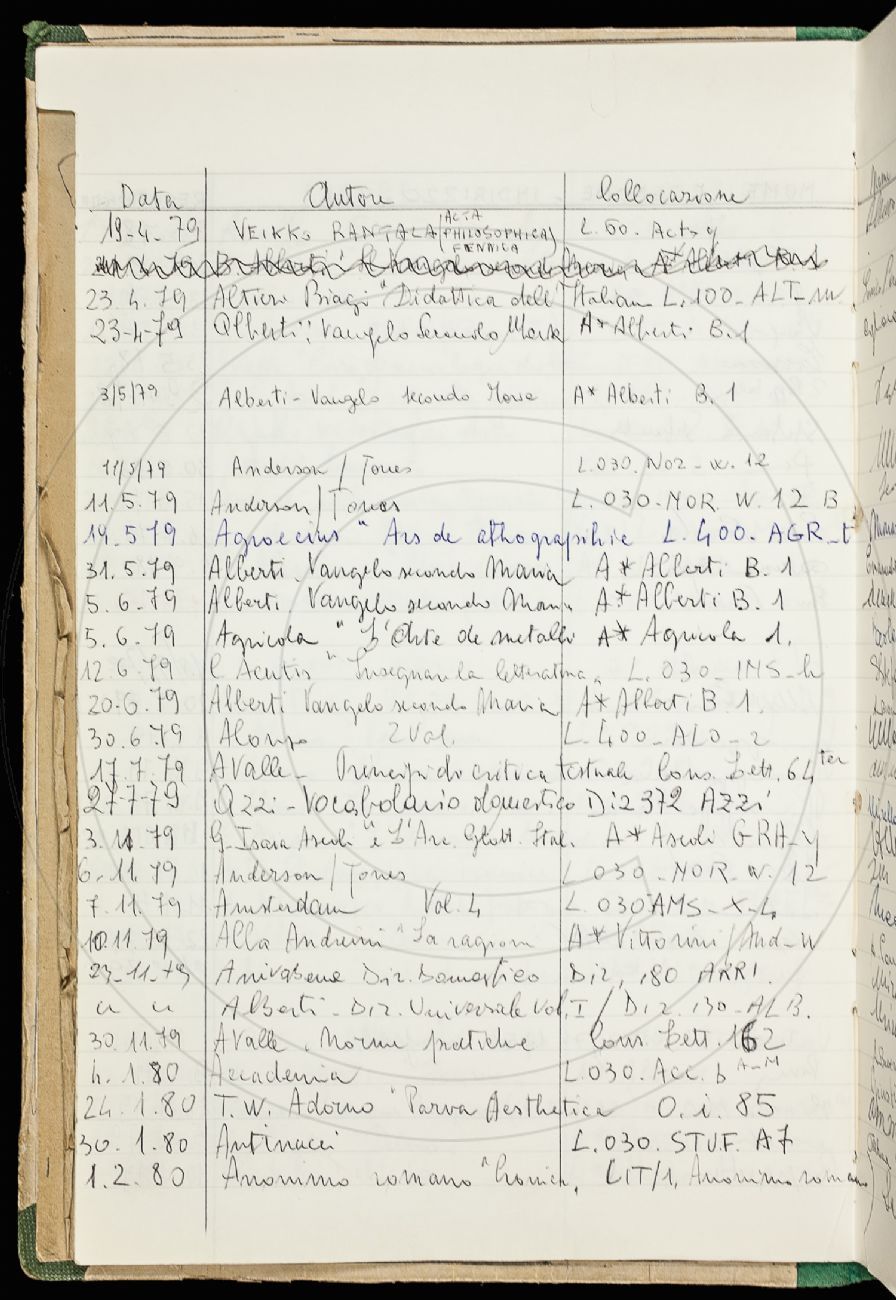 Data Autore Collocazione
19-4-79 VEIKKO RANTALA (ACTA PHILOSOPHICA FENNICA) L. 60. Acta y
23.4.79 Altieri Biagi "Didattica dell'Italiano L.100-ALT-m
23-4-79 Alberti: Vangelo Secondo Maria A* Alberti B.1
3/5/79 Alberti-Vangelo secondo Maria A* Alberti B.1
11/5/79 Anderson/Jones L.030.NOR-w.12
11.5.79 Anderson/Jones L.030-NOR.W.12 B
19.5 79 Agroecius " Ars de orthographie L.400.AGR-t
31.5.79 Alberti. Vangelo secondo Maria A* Alberti B.1
5.6.79 Alberti. Vangelo secondo Maria A* Alberti B.1
5.6.79 Agricola " L'Arte de metalli A* Agricola 1.
12.6.79 C Acutis " Insegnare la letteratura, L.030-INS-h
20.6.79 Alberti Vangelo secondo Maria A* Alberti B 1.
30.6.79 Alonso 2 Vol. L.400-ALO-2
17.7.79 AValle- Principi di critica testuale Cons. Lett. 64 ter
27-7-79 Azzi-Vocabolario domestico Diz 372 AZZi
3.11.79 G. Isaia Ascoli " L'Arc. Glott. Ital. A* Ascoli GRA-y
6.11.79 Anderson/Jones L 030-NOR-w.12
7.11.79 Amsterdam Vol. 4 L.030 AMS-X-4
10.11.79 Alba Andreini "La ragione A* Vittorini/And-w
23-11-79 Arrivabene Diz. Domestico Diz, 180 ARRI.
" " Alberti-Diz. Universale Vol. I / Diz. 130-ALB.
30.11.79 AValle. Norme pratiche Cons. Lett. 162
4.1.80 Accademia L.030.Acc.b A-M
24.1.80 T.W. Adorno "Parva Aesthetica O.i.85
30.1.80 Antinucci L.030.STUF.A7
1.2.80 Anonimo romano "Cronica, LIT/1, Anonimo romano